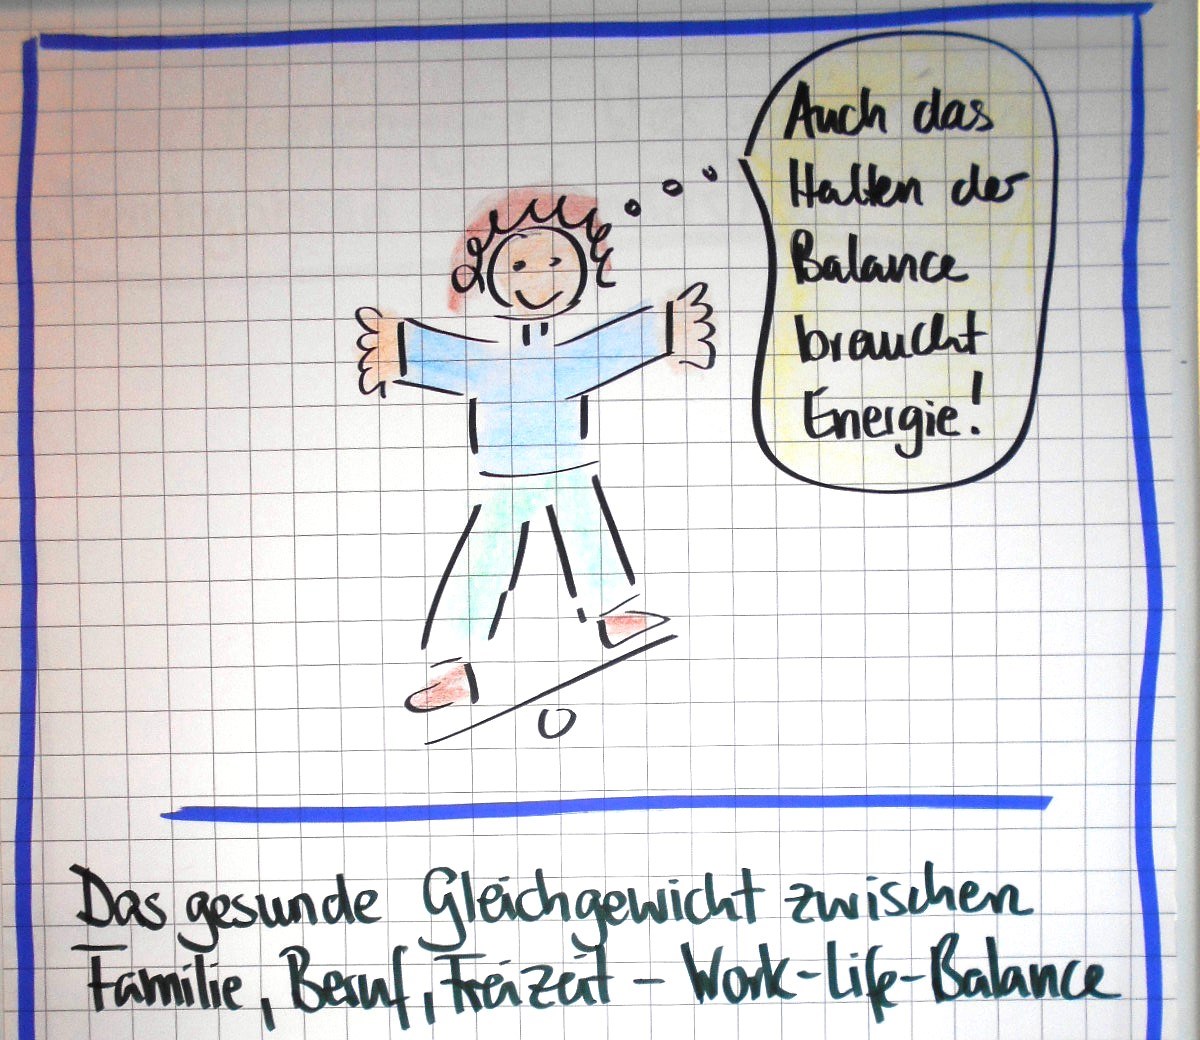 Auch das
Halten der
Balance
braucht
Energie!
Das gesunde Gleichgewicht zwischen
Familie, Beruf, Freizeit - Work-Life-Balance